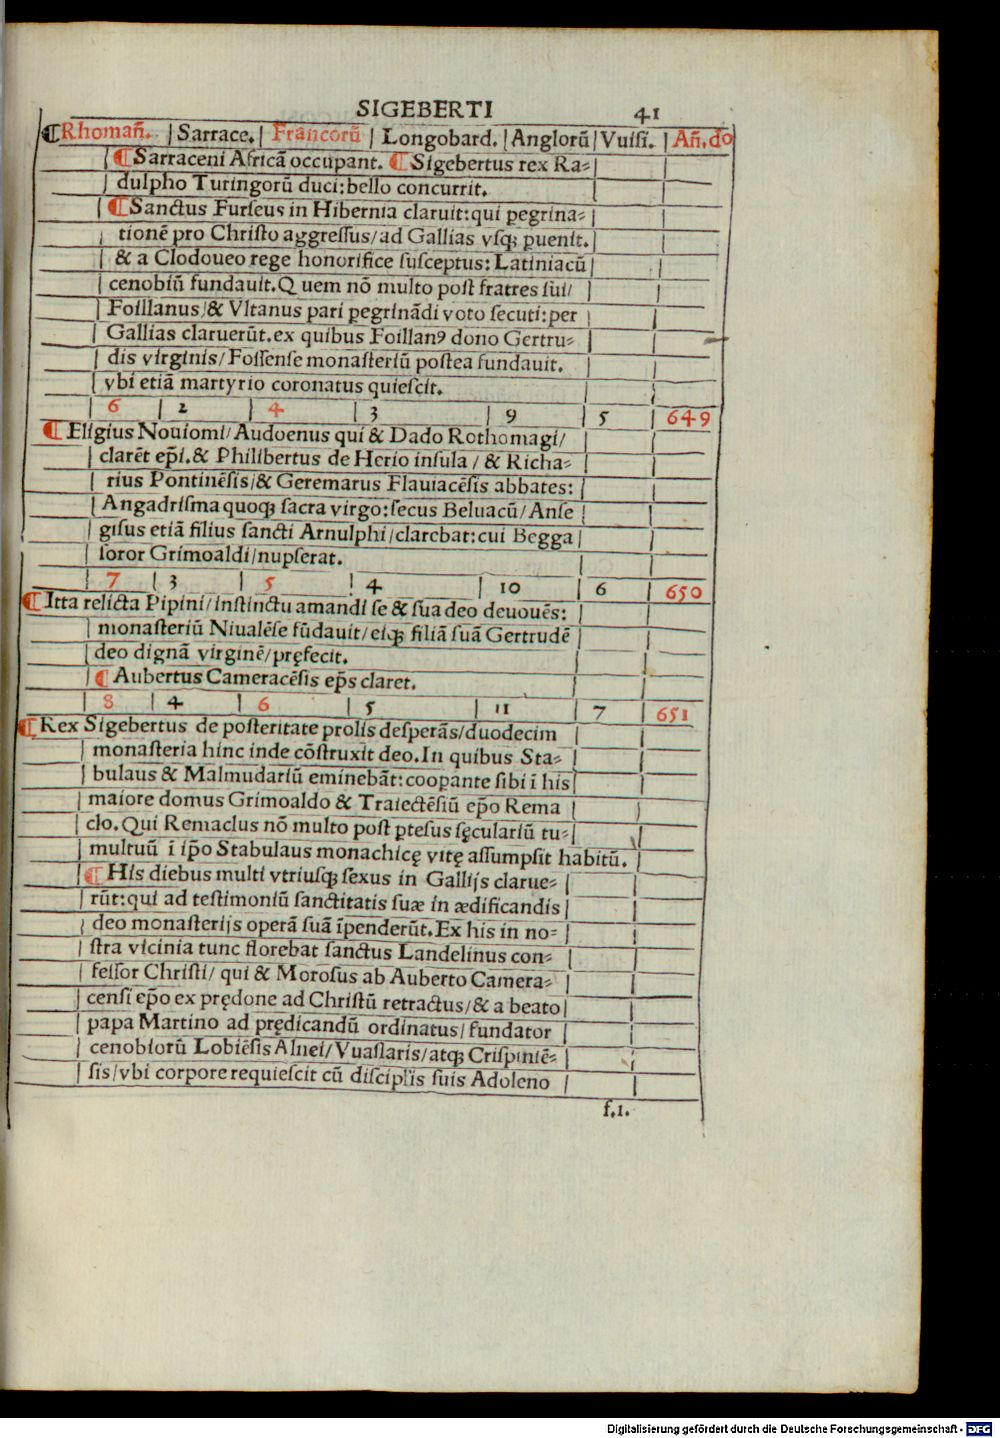 SIGEBERTI 41
¶Rhomañ. | Sarrace. | Francorū | Longobard. | Anglorū | Vuisi. | Añ.do
¶Sarraceni Africā occupant. ¶Sigebertus rex Ra⸗
dulpho Turingorū duci:bello concurrit.
¶Sanctus Furseus in Hibernia claruit:qui ꝑegrina⸗
tionē pro Christo aggressus/ad Gallias vsqꝫ ꝑuenit.
& a Clodoueo rege honorifice susceptus: Latiniacū
cenobiū fundauit.Quem nō multo post fratres sui/
Foillanus/& Vltanus pari ꝑegrinādi voto secuti:per
Gallias claruerūt.ex quibus Foillanꝰ dono Gertru⸗
dis virginis/Fossense monasteriū postea fundauit.
vbi etiā martyrio coronatus quiescit.
6 | 2 | 4 | 3 | 9 | 5 | 649
¶Eligius Nouiomi/Audoenus qui & Dado Rothomagi/
clarēt ep̄i.& Philibertus de Herio insula / & Richa⸗
rius Pontinēsis/& Geremarus Flauiacēsis abbates:
Angadrisma quoqꝫ sacra virgo:secus Beluacū/Anse
gisus etiā filius sancti Arnulphi/clarebat:cui Begga
soror Grimoaldi/nupserat.
7 | 3 | 5 | 4 | 10 | 6 | 650
¶Itta relicta Pipini/instinctu amandi se & sua deo deuouēs:
monasteriū Niualēse fūdauit/eiqꝫ filiā suā Gertrudē
deo dignā virginē/pręfecit.
¶Aubertus Cameracēsis ep̄s claret.
8 | 4 | 6 | 5 | 11 | 7 | 651
¶Rex Sigebertus de posteritate prolis desperās/duodecim
monasteria hinc inde cōstruxit deo.In quibus Sta⸗
bulaus & Malmudariū eminebāt:cooꝑante sibi ī his
maiore domus Grimoaldo & Traiectēsiū ep̄o Rema
clo.Qui Remaclus nō multo post ꝑtesus sęculariū tu⸗
multuū ī ip̄o Stabulaus monachicę vitę assumpsit habitū.
¶His diebus multi vtriusqꝫ sexus in Gallijs clarue⸗
rūt:qui ad testimoniū sanctitatis suæ in ædificandis
deo monasterijs operā suā īpenderūt.Ex his in no⸗
stra vicinia tunc florebat sanctus Landelinus con⸗
fessor Christi/ qui & Morosus ab Auberto Camera⸗
censi ep̄o ex prędone ad Christū retractus/& a beato
papa Martino ad prędicandū ordinatus/fundator
cenobiorū Lobiēsis Alnei/Vuaslaris/atqꝫ Crispiniē⸗
sis/vbi corpore requiescit cū disciplis suis Adoleno
f.1.
Digitalisierung gefördert durch die Deutsche Forschungsgemeinschaft - DFG